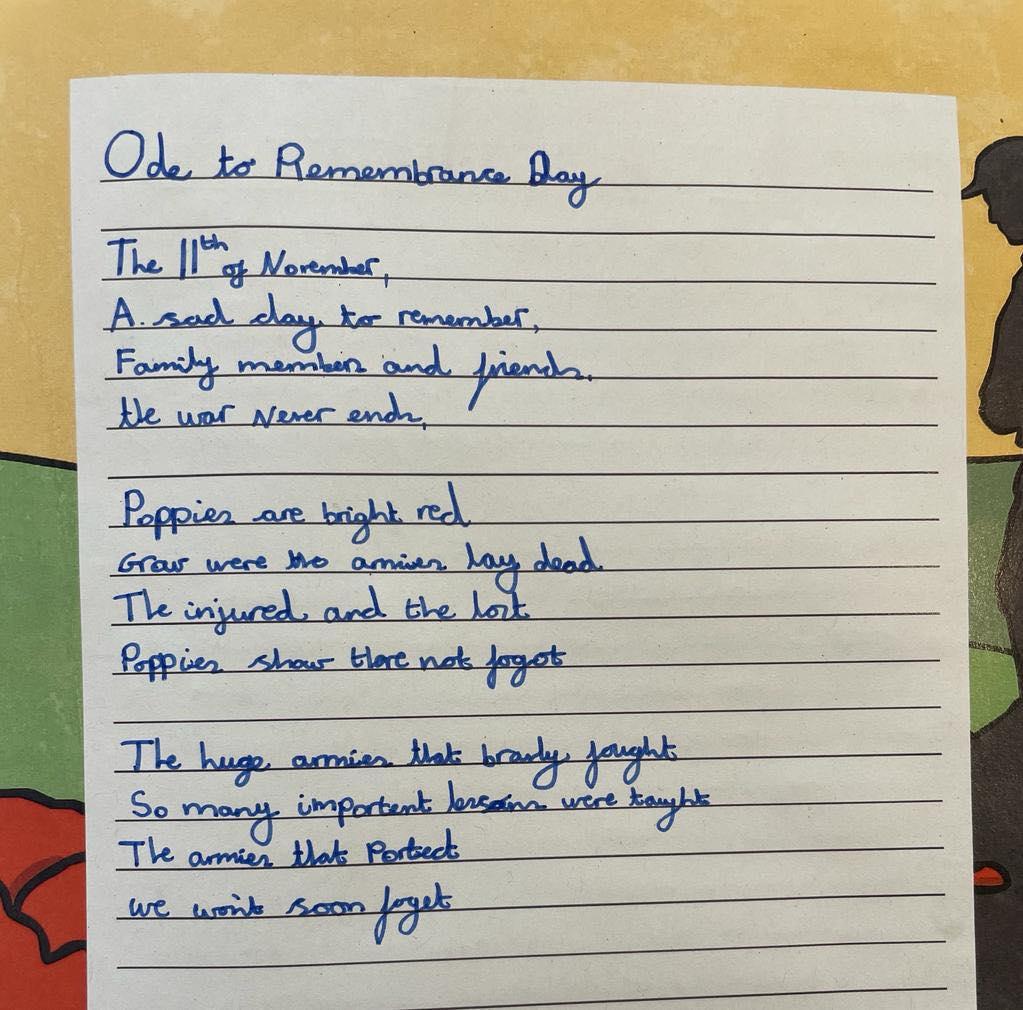 Ode to Remembrance Day
The 11th of November,
A sad day to remember,
Family members and friends.
the war Never ends,
Poppies are bright red
Grow were the armies lay dead.
The injured and the lost
Poppies show there not fogot
The huge armies that bravly fought
So many importent lessons were taught
The armies that Portect
we won't soon foget